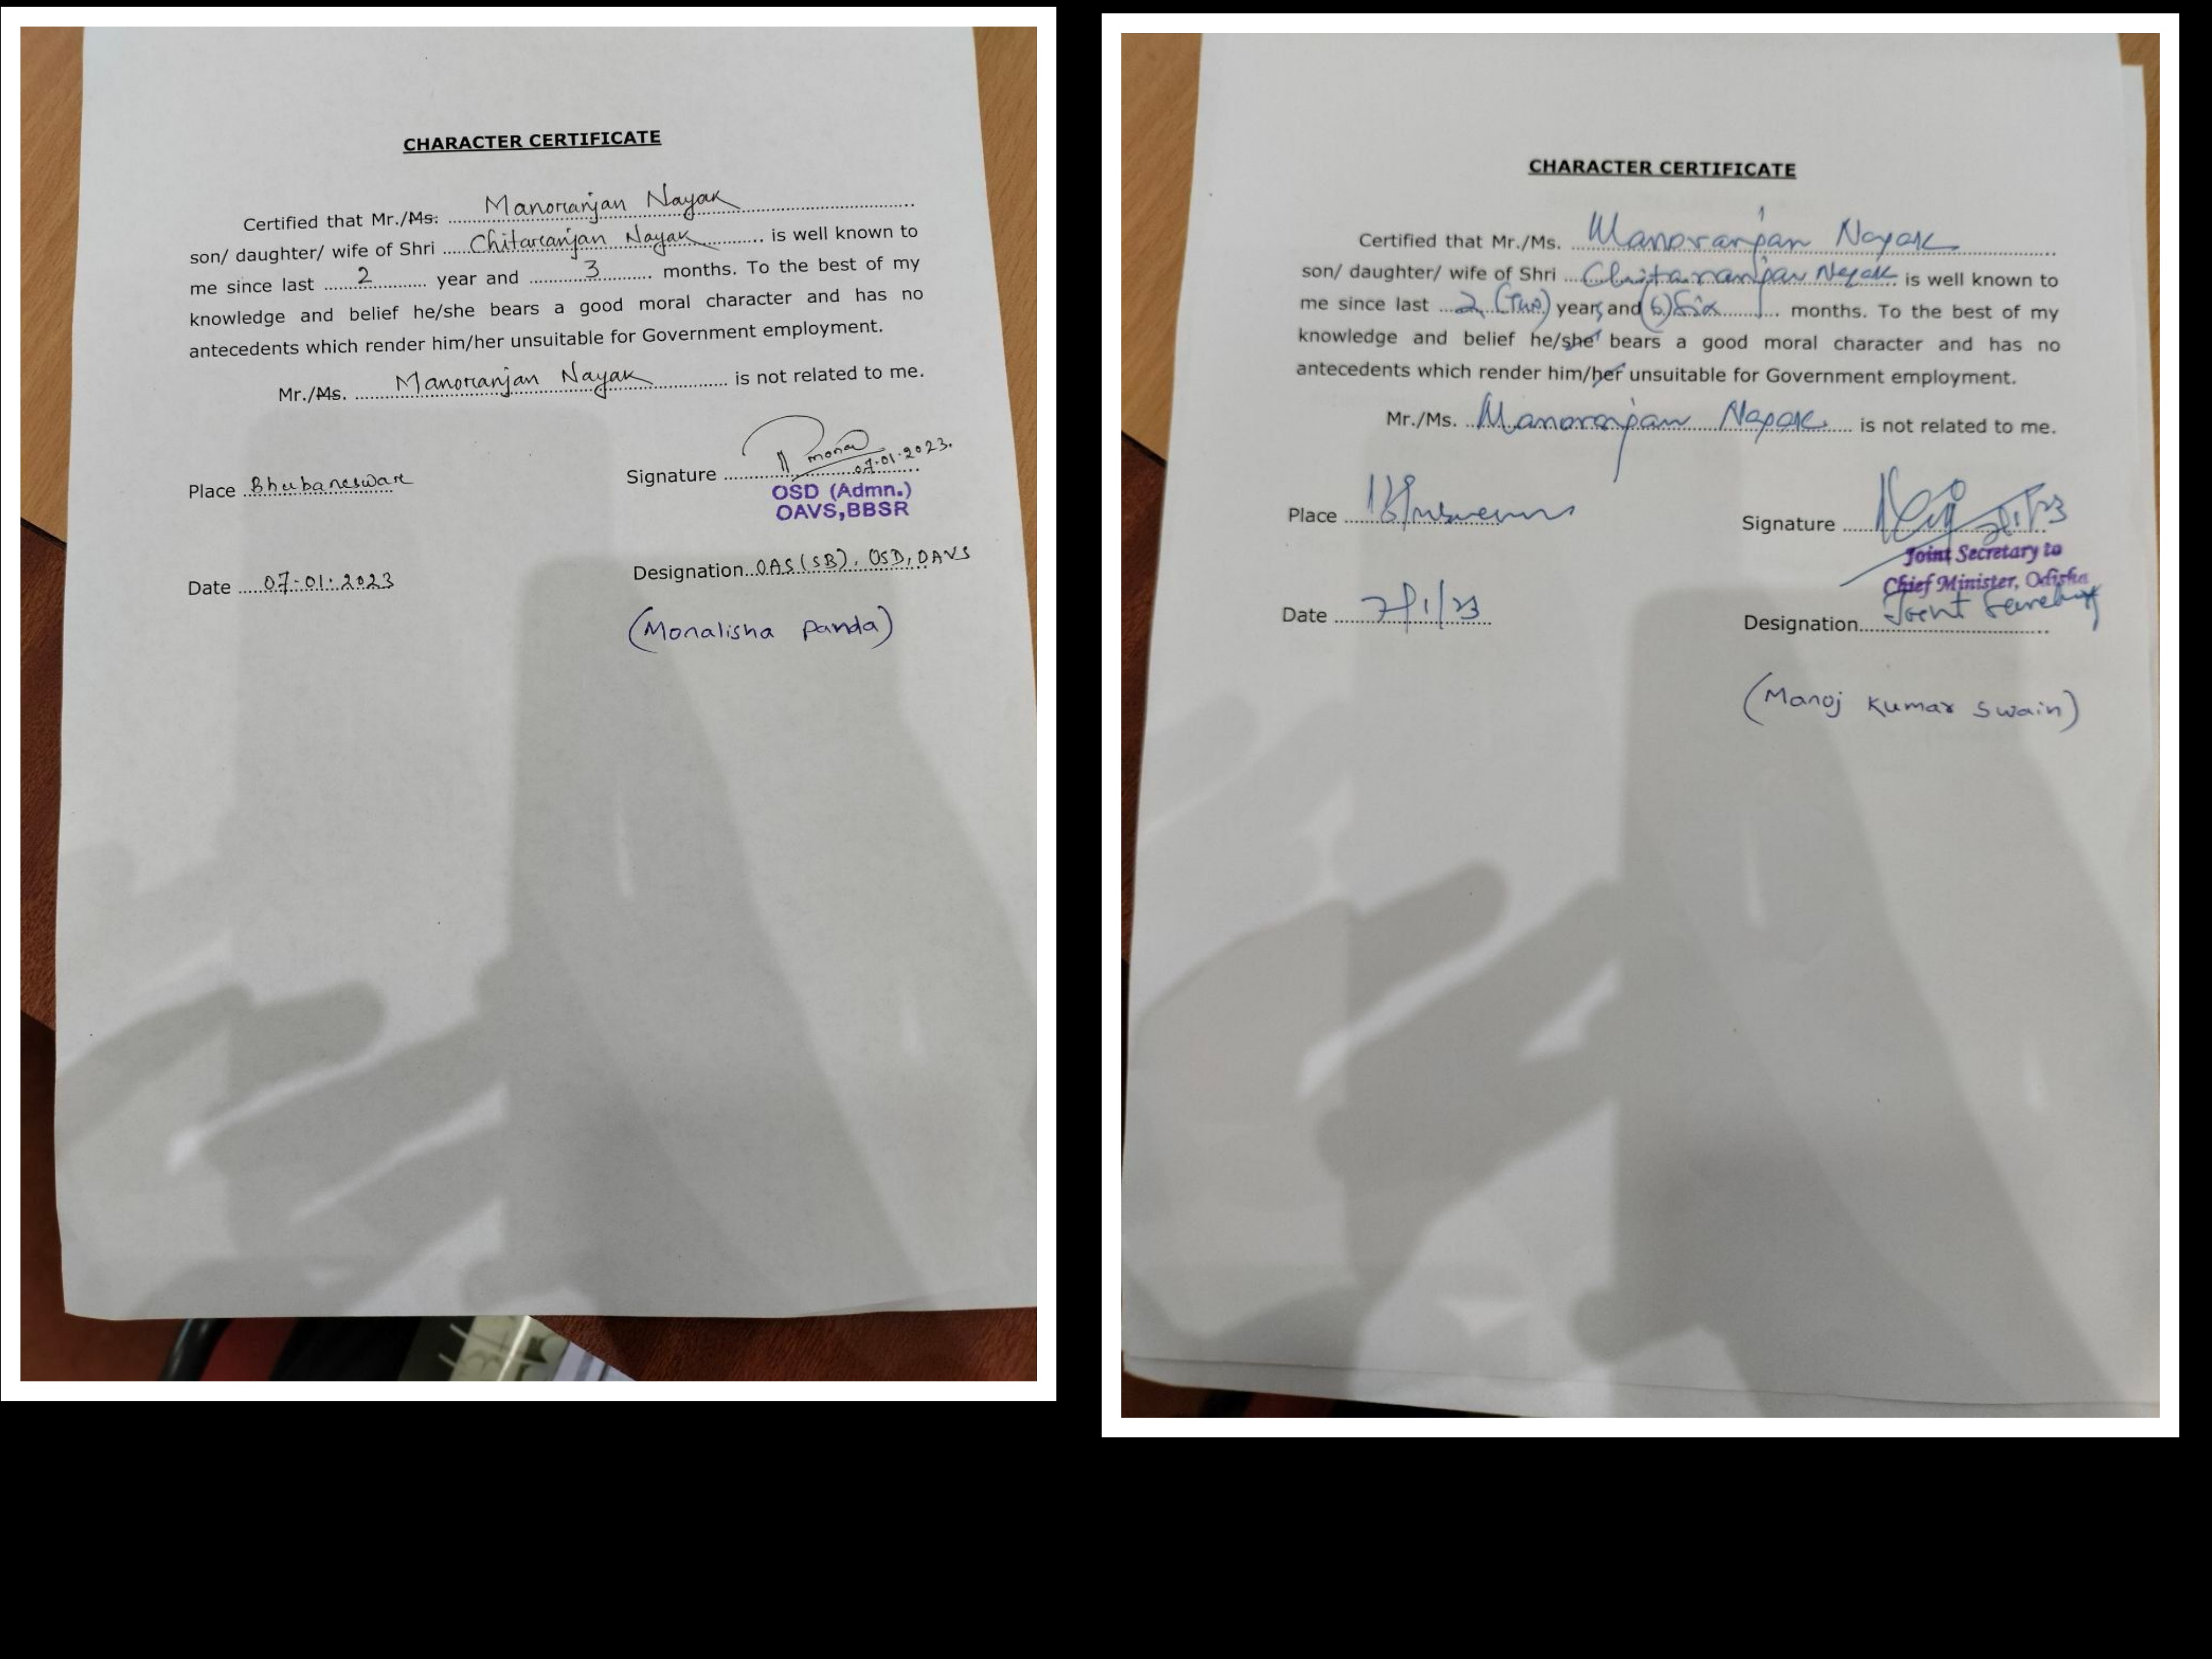 CHARACTER CERTIFICATE
Certified that Mr./Ms. Manoranjan Nayak
son/ daughter/ wife of Shri Chitaranjan Nayak is well known to
me since last 2 year and 3 months. To the best of my
knowledge and belief he/she bears a good moral character and has no
antecedents which render him/her unsuitable for Government employment.
Mr./Ms. Manoranjan Nayak is not related to me.
Signature mona 07.01.2023.
Place Bhubaneswar
OSD (Admn.)
OAVS,BBSR
Designation OAS(SB), OSD, OAVS
Date 07.01.2023
(Monalisha Panda)
CHARACTER CERTIFICATE
Certified that Mr./Ms. Manoranjan Nayak
son/ daughter/ wife of Shri Chitaranjan Nayak is well known to
me since last 2 (Two) years and (6) Six months. To the best of my
knowledge and belief he/she bears a good moral character and has no
antecedents which render him/her unsuitable for Government employment.
Mr./Ms. Manoranjan Nayak is not related to me.
Place
Signature
Joint Secretary to
Chief Minister, Odisha
Date 7/1/23
Designation Joint Secretary
(Manoj Kumar Swain)